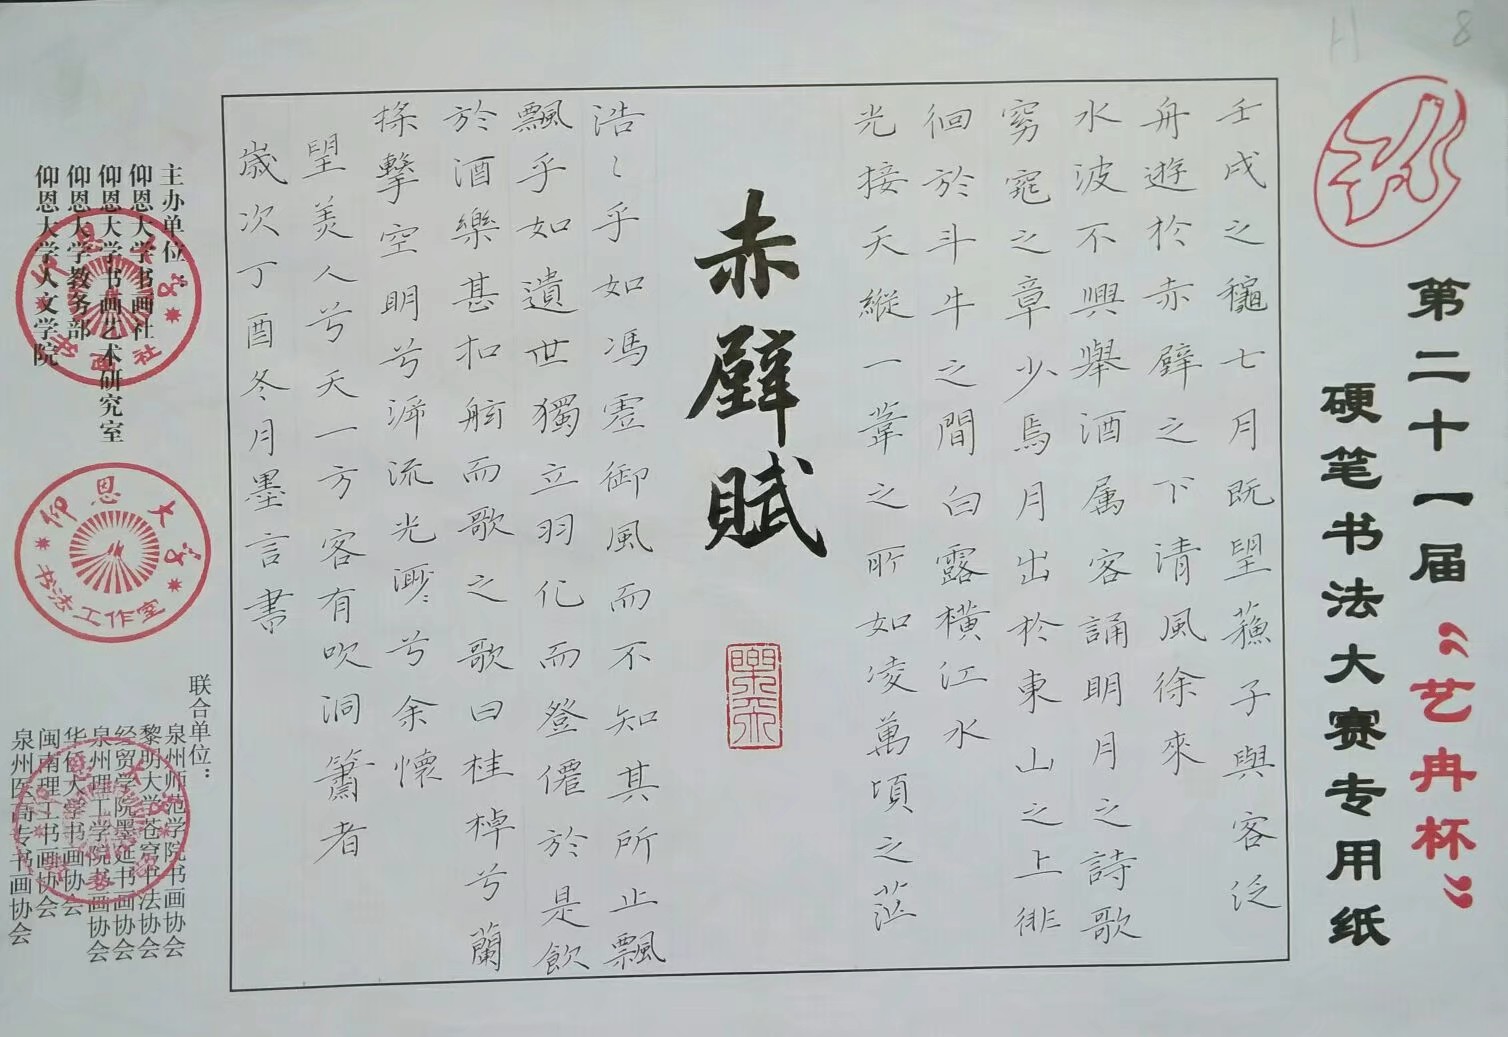 第二十一届“艺冉杯”
硬笔书法大赛专用纸
壬戌之龝七月既望蘓子與客泛
舟遊於赤壁之下清風徐來
水波不興舉酒属客誦明月之詩歌
窈窕之章少焉月出於東山之上徘
徊於斗牛之間白露橫江水
光接天縱一葦之所如凌萬頃之茫
赤壁賦
浩〻乎如馮虛御風而不知其所止飄
飄乎如遺世獨立羽化而登僊於是飲
於酒樂甚扣舷而歌之歌曰桂棹兮蘭
槳擊空明兮泝流光渺〻兮余懷
望美人兮天一方客有吹洞簫者
歲次丁酉冬月墨言書
主办单位：
仰恩大学书画社
仰恩大学书画艺术研究室
仰恩大学教务部
仰恩大学人文学院
仰恩大学
书画社
仰恩大学
书法工作室
联合单位：
泉州师范学院书画协会
黎明大学苍穹书法协会
经贸学院墨延书画协会
泉州理工学院书画协会
华侨大学书画协会
闽南理工书画协会
泉州医高专书画协会